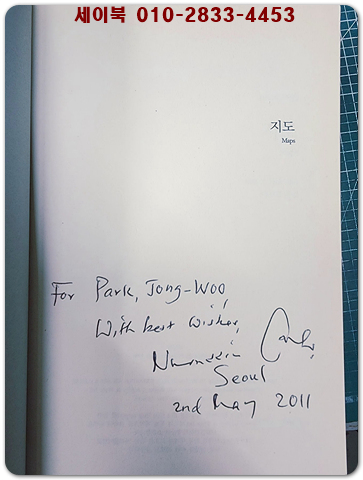 세이북 010-2833-4453
지도
Maps
For Park, Jong-Woo,
With best wishes,
Nuruddin Farah,
Seoul
2nd May 2011